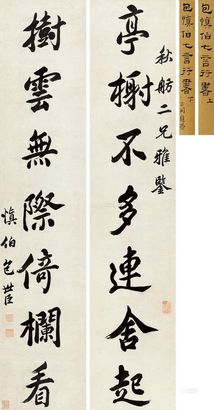 包慎伯七言行書上
包慎伯七言行書下
秋舫二兄雅鑒
亭榭不多連舍起
樹雲無際倚欄看
慎伯包世臣